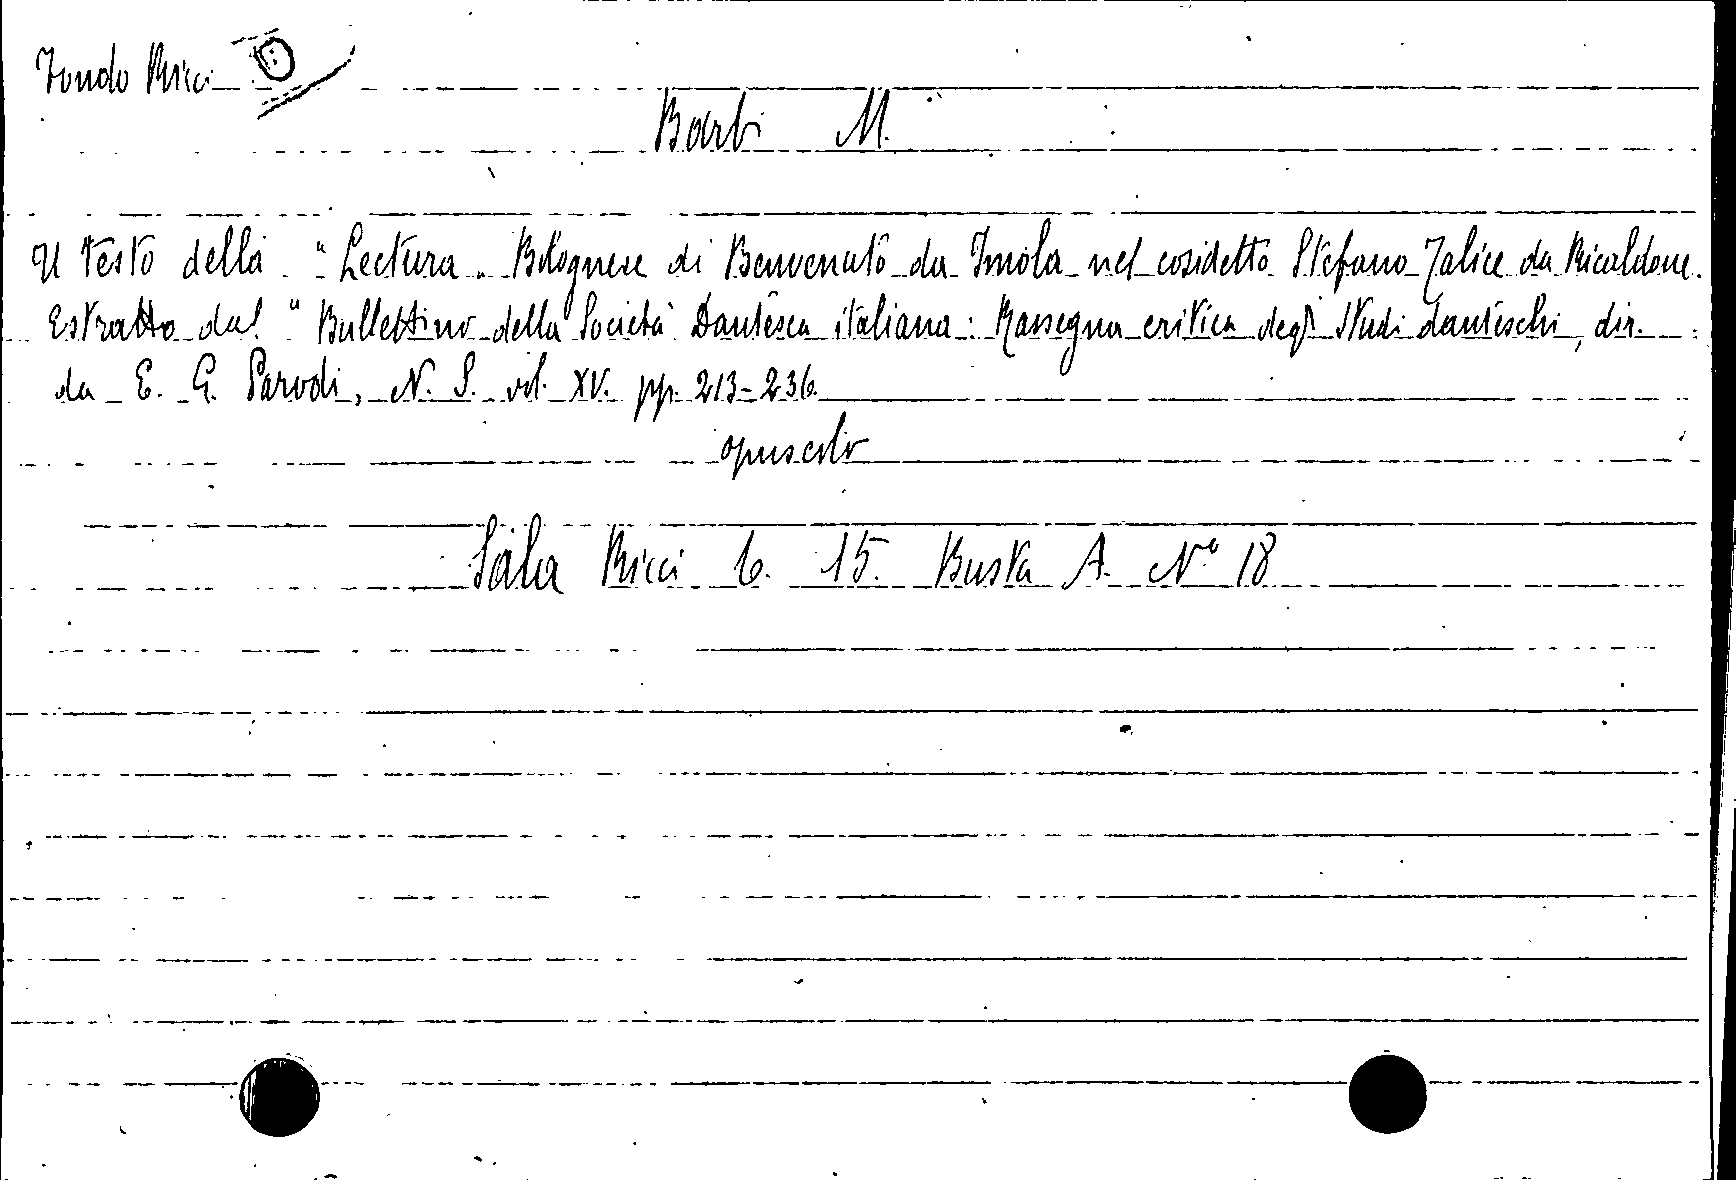 Fondo Ricci
Barbi M.
Il testo della "Lectura" Bolognese di Benvenuto da Imola nel cosidetto Stefano Talice da Ricaldone.
Estratto dal "Bullettino della Società Dantesca italiana: Rassegna critica degli Studi danteschi, dir.
da E. G. Parodi, N. S. vol. XV. pp. 213-236.
opuscolo
Sala Ricci 6. 15. Busta A. N° 18